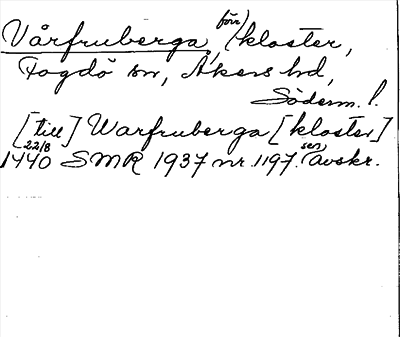 Vårfruberga, (förr) kloster,
Fogdö sn, Åkers hd,
Söderm. l.
[till] Warfruberga [kloster]
1440 22/8 SMR 1937 nr. 1197. (sen) avskr.